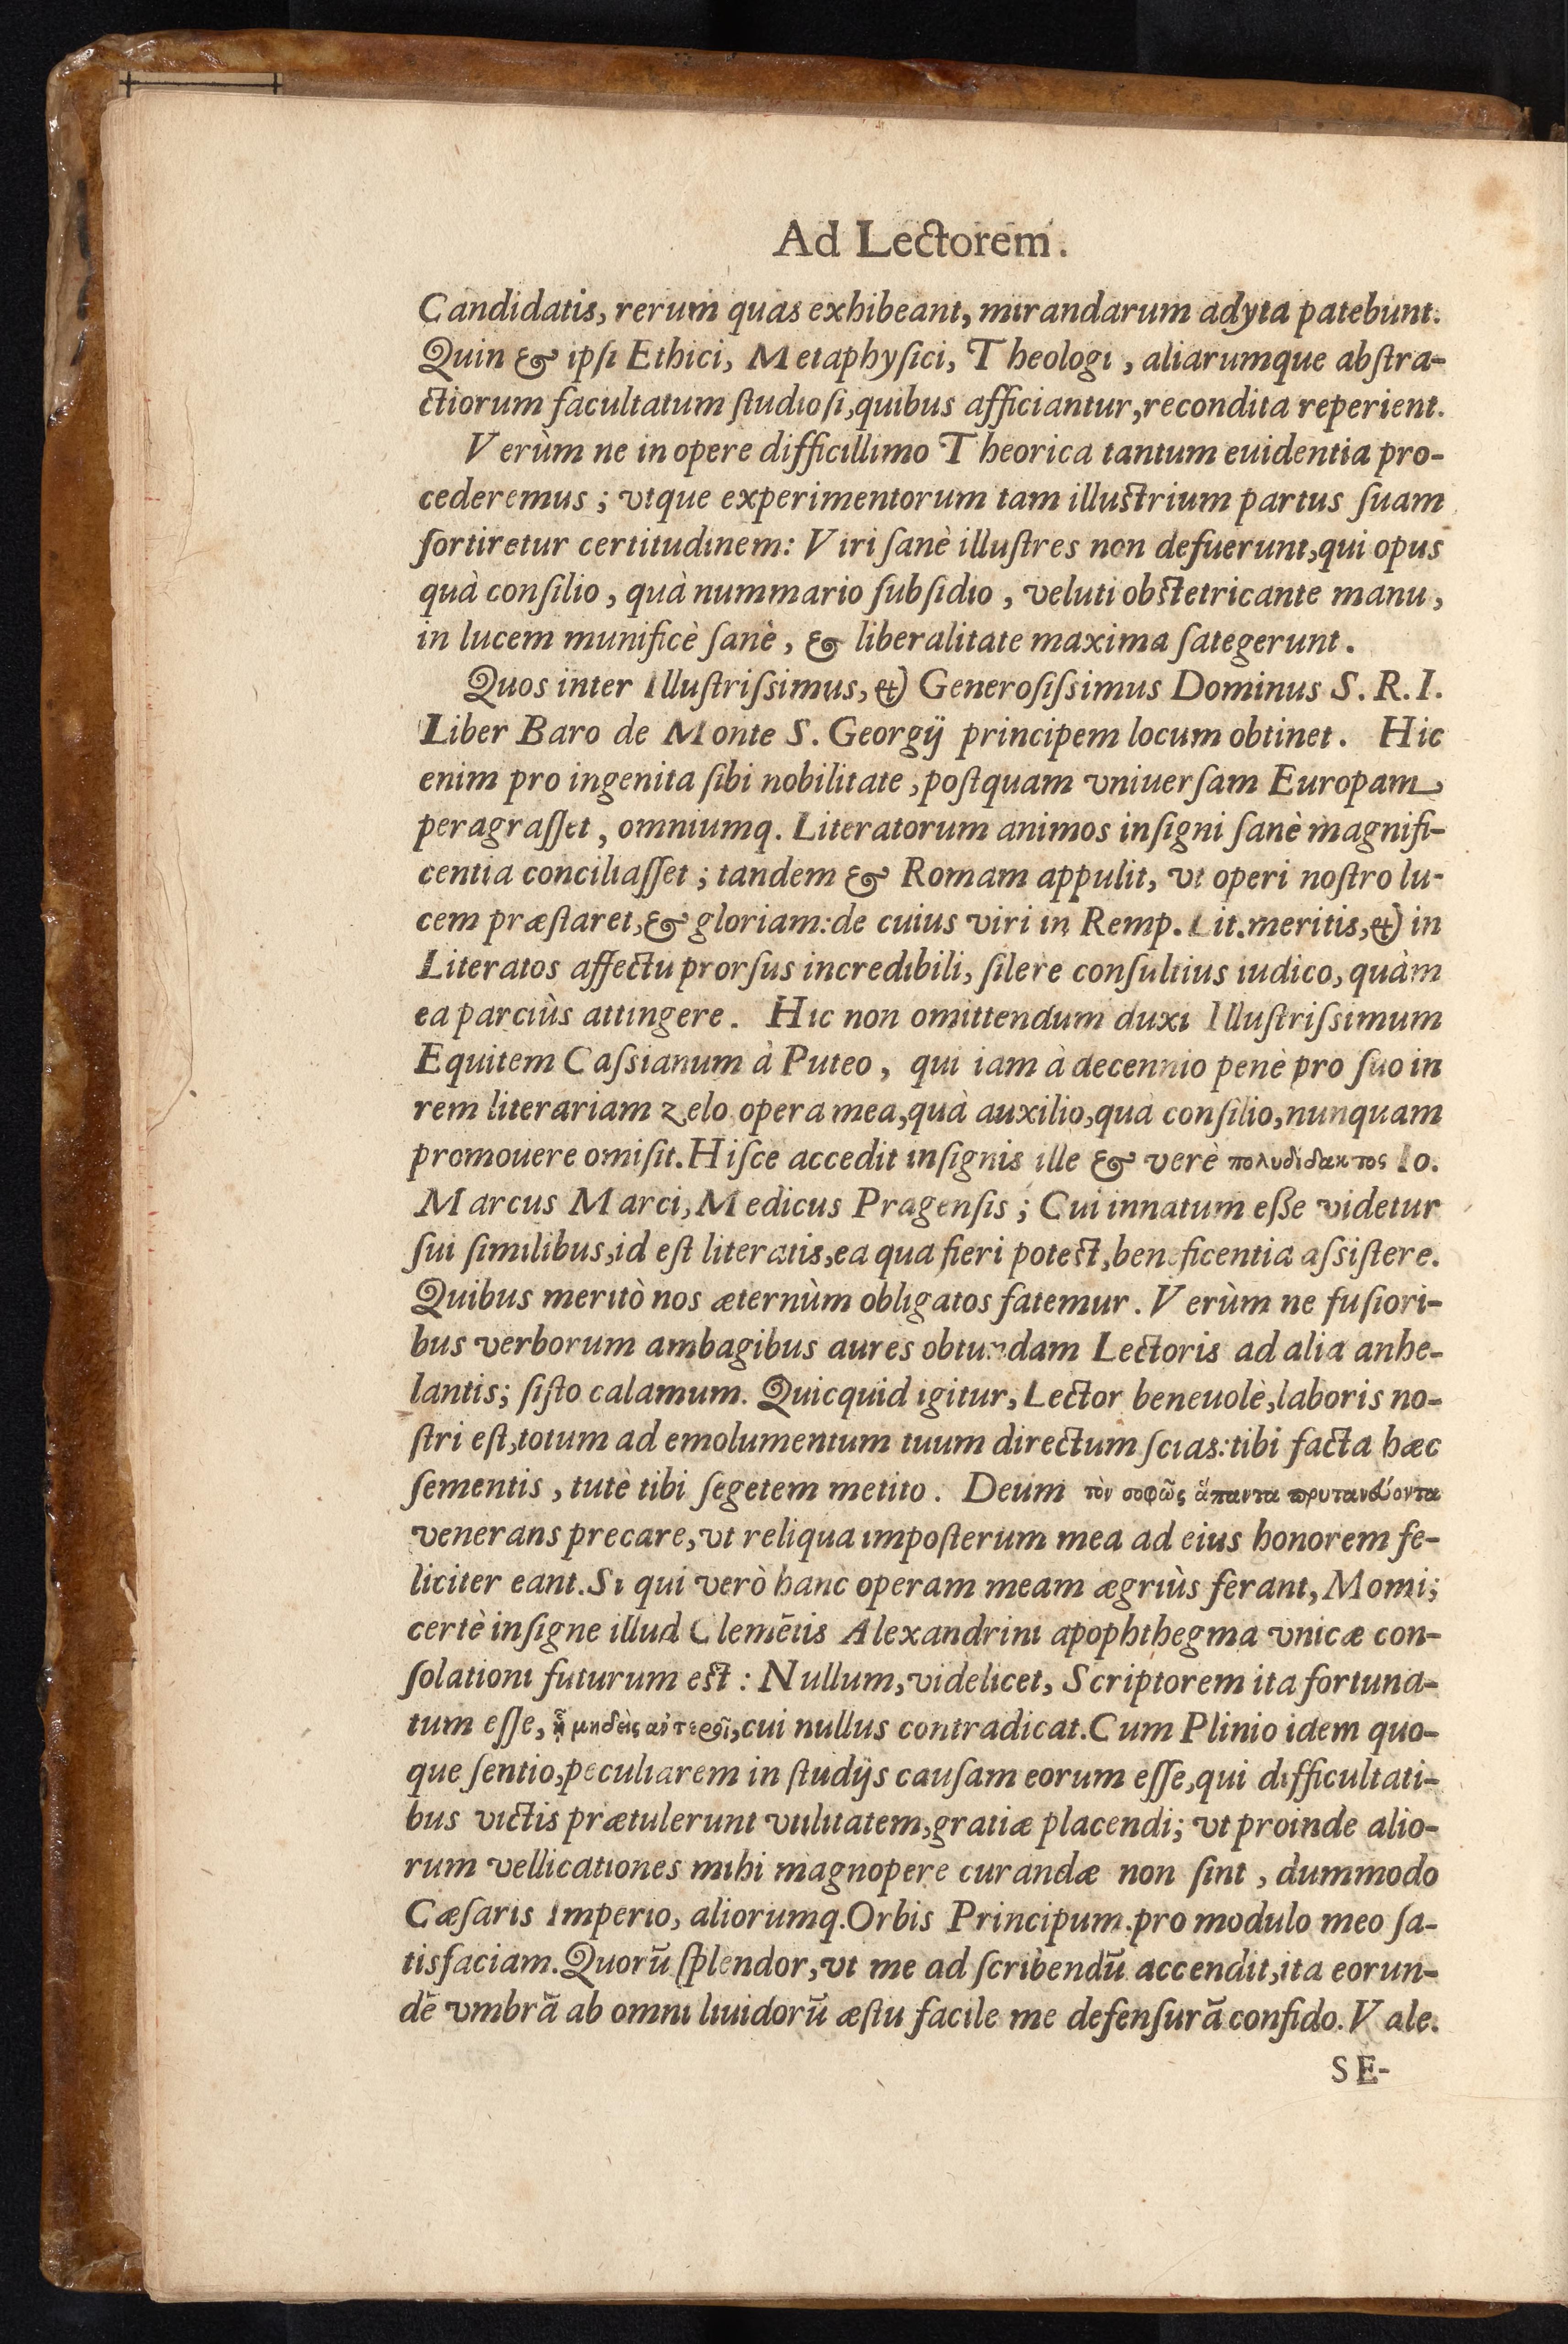 Ad Lectorem.
Candidatis, rerum quas exhibeant, mirandarum adyta patebunt.
Quin & ipſi Ethici, Metaphyſici, Theologi, aliarumque abſtra-
ctiorum facultatum ſtudioſi, quibus afficiantur, recondita reperient.
Verùm ne in opere difficillimo Theorica tantum euidentia pro-
cederemus; vtque experimentorum tam illuſtrium partus ſuam
ſortiretur certitudinem: Viri ſanè illuſtres non defuerunt, qui opus
quà conſilio, quà nummario ſubſidio, veluti obſtetricante manu,
in lucem munificè ſanè, & liberalitate maxima ſategerunt.
Quos inter Illuſtriſsimus, & Generoſiſsimus Dominus S. R. I.
Liber Baro de Monte S. Georgij principem locum obtinet. Hic
enim pro ingenita ſibi nobilitate, poſtquam vniuerſam Europam
peragraſſet, omniumq. Literatorum animos inſigni ſanè magnifi-
centia conciliaſſet; tandem & Romam appulit, vt operi noſtro lu-
cem præſtaret, & gloriam: de cuius viri in Remp. Lit. meritis, & in
Literatos affectu prorſus incredibili, ſilere conſultius iudico, quàm
ea parciùs attingere. Hic non omittendum duxi Illuſtriſsimum
Equitem Caſsianum à Puteo, qui iam à decennio penè pro ſuo in
rem literariam zelo opera mea, quà auxilio, quà conſilio, nunquam
promouere omiſit. Hiſce accedit inſignis ille & verè πολυδίδακτος Io.
Marcus Marci, Medicus Pragenſis; Cui innatum eſße videtur
ſui ſimilibus, id eſt literatis, ea qua fieri poteſt, beneficentia aſsiſtere.
Quibus meritò nos æternùm obligatos fatemur. Verùm ne fuſiori-
bus verborum ambagibus aures obtundam Lectoris ad alia anhe-
lantis; ſiſto calamum. Quicquid igitur, Lector beneuolè, laboris no-
ſtri eſt, totum ad emolumentum tuum directum ſcias: tibi facta hæc
ſementis, tutè tibi ſegetem metito. Deum τὸν σοφῶς ἅπαντα πρυτανεύοντα
venerans precare, vt reliqua impoſterum mea ad eius honorem fe-
liciter eant. Si qui verò hanc operam meam ægriùs ferant, Momi;
certè inſigne illud Clemẽtis Alexandrini apophthegma vnicæ con-
ſolationi futurum eſt: Nullum, videlicet, Scriptorem ita fortuna-
tum eſſe, ᾧ μηδεὶς ἀντερεῖ, cui nullus contradicat. Cum Plinio idem quo-
que ſentio, peculiarem in ſtudijs cauſam eorum eſſe, qui difficultati-
bus victis prætulerunt vtilitatem, gratiæ placendi; vt proinde alio-
rum vellicationes mihi magnopere curandæ non ſint, dummodo
Cæſaris Imperio, aliorumq. Orbis Principum. pro modulo meo ſa-
tisfaciam. Quorũ ſplendor, vt me ad ſcribendũ accendit, ita eorun-
dẽ vmbrã ab omni liuidorũ æſtu facile me defenſurã confido. Vale.
SE-